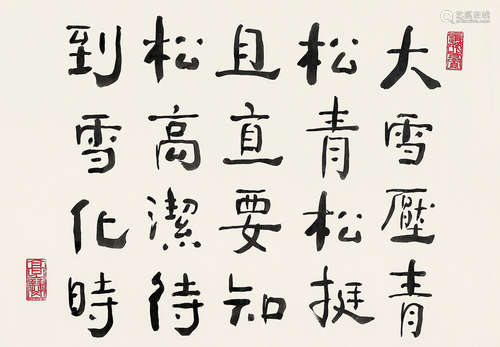 大雪壓青
松青松挺
且直要知
松高潔待
到雪化時